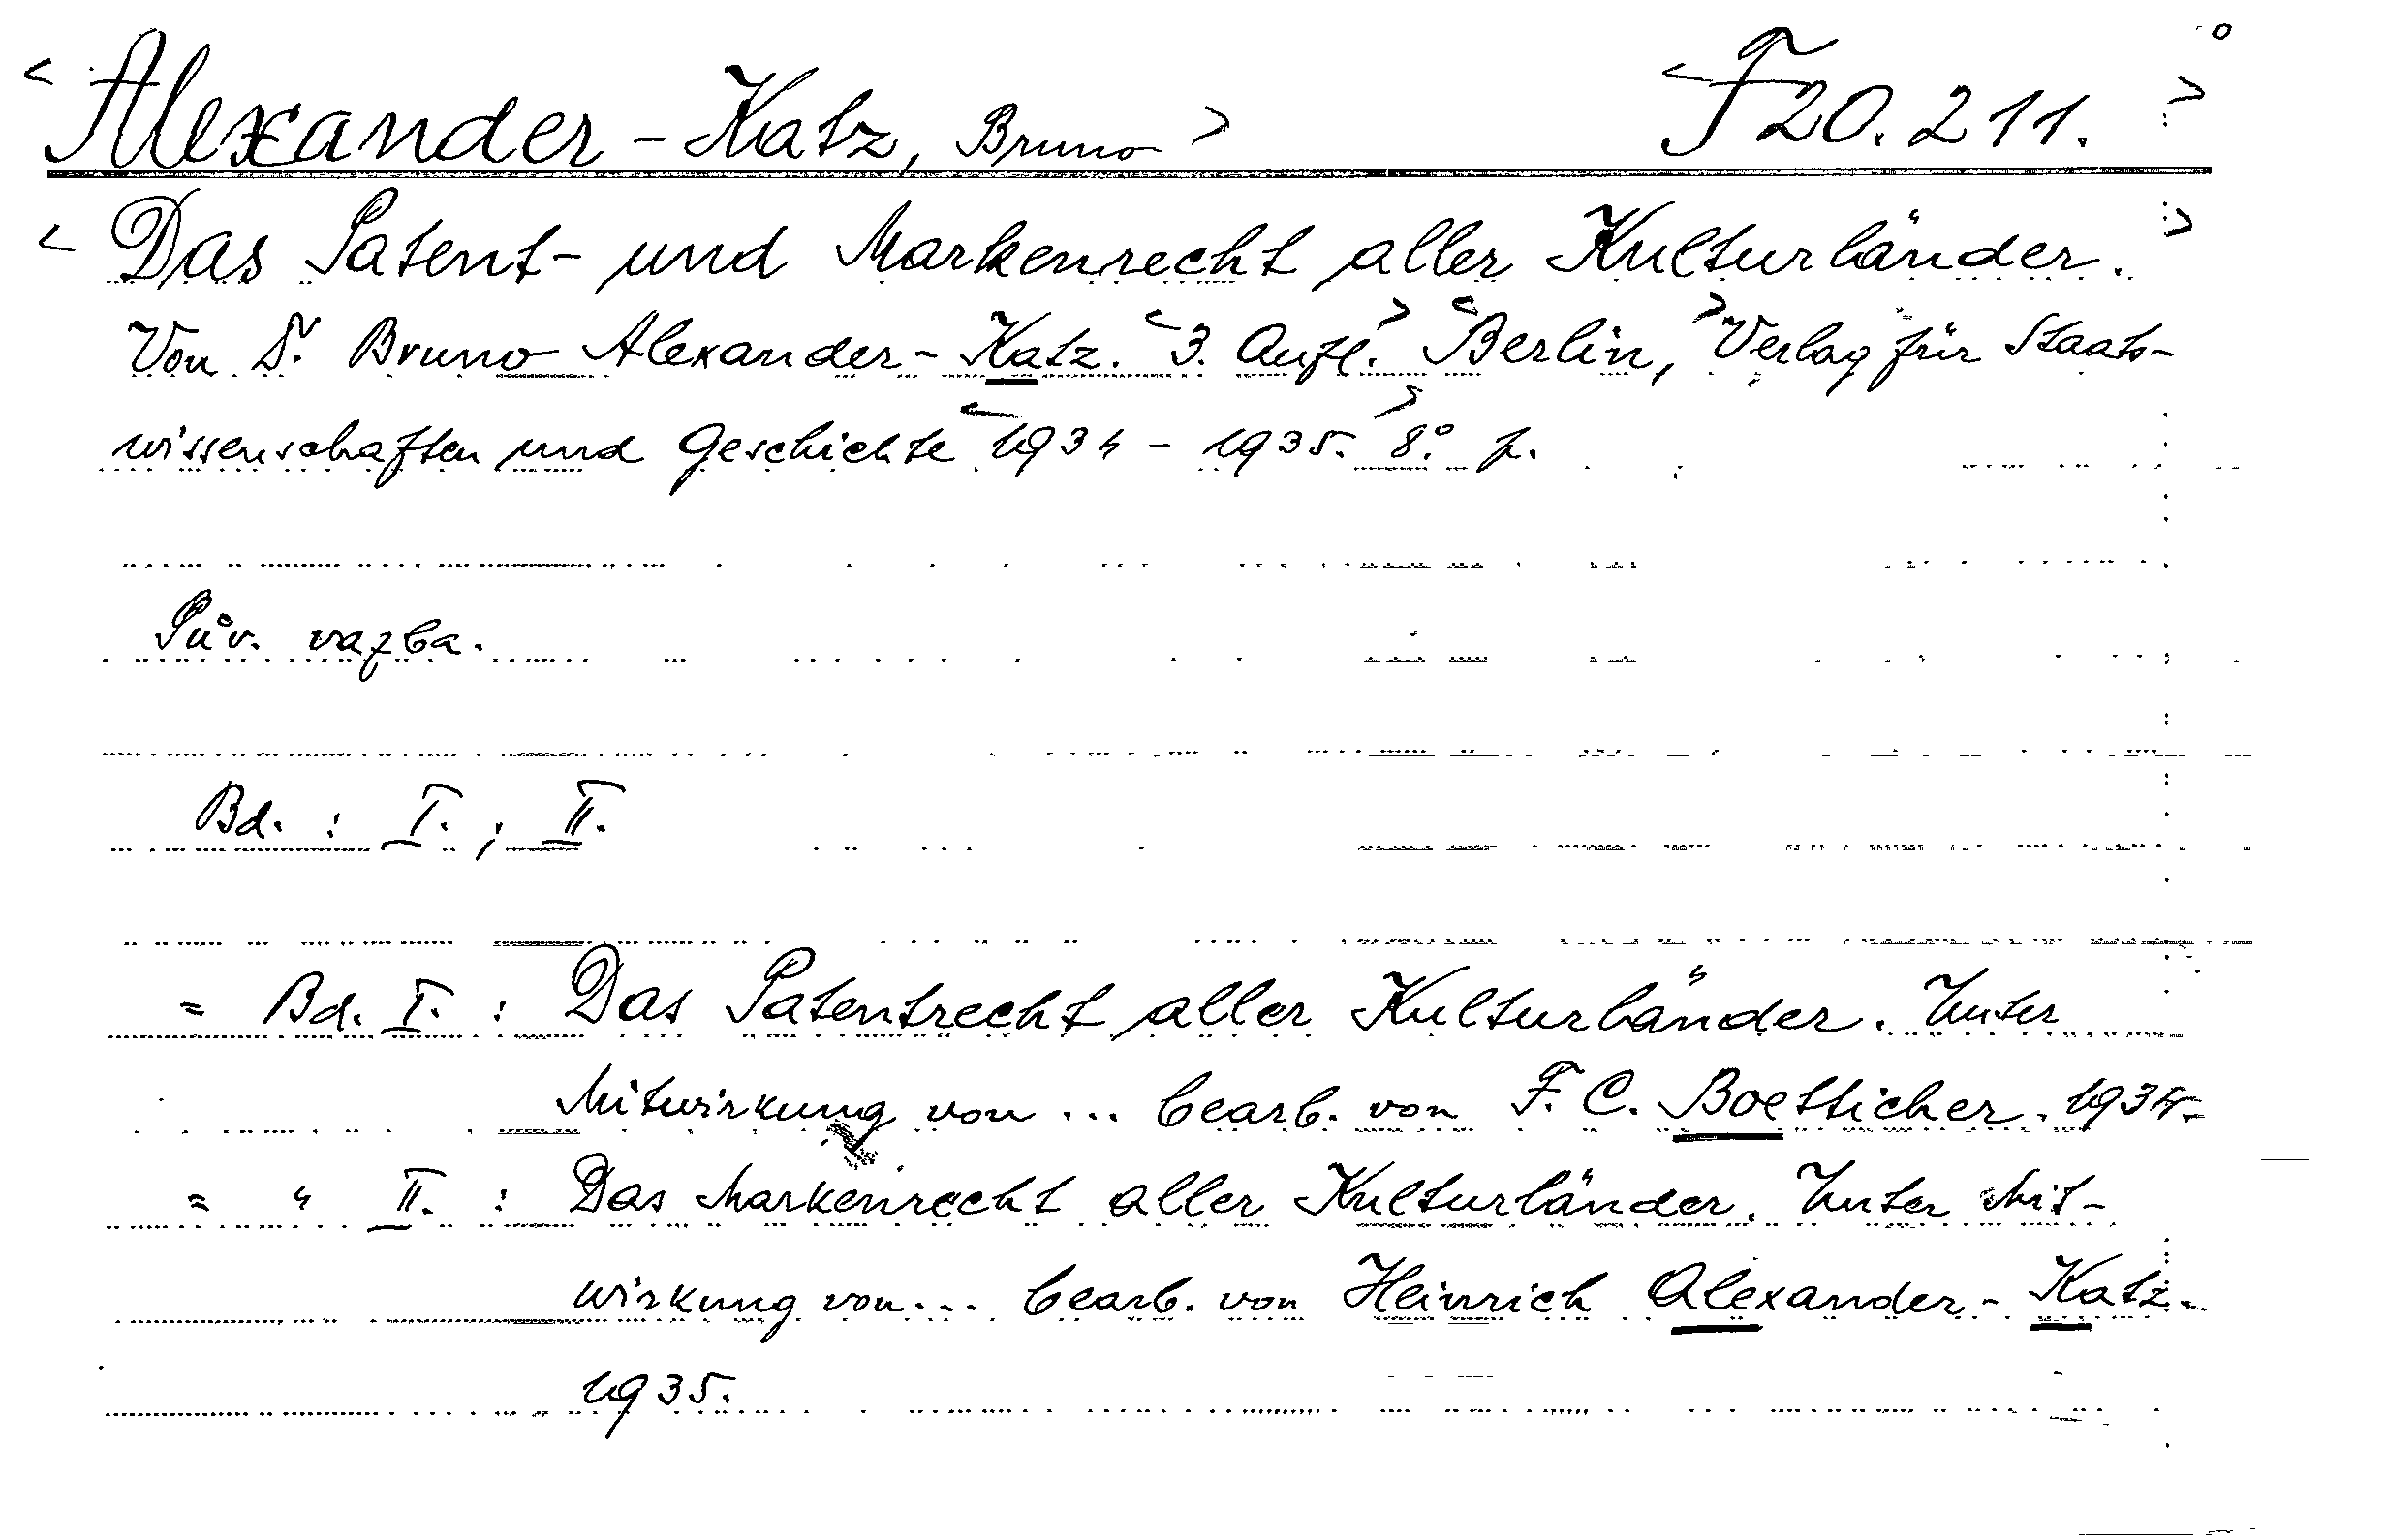 <Alexander-Katz, Bruno> <F 20.211.>
<Das Patent- und Markenrecht aller Kulturländer.>
Von Dr. Bruno Alexander-Katz. <3. Aufl.> <Berlin,> Verlag für Staats-
wissenschaften und Geschichte <1934 - 1935.> 8°.
Pův. vazba.
Bd. : I. ; II.
= Bd. I. : Das Patentrecht aller Kulturländer. Unter
Mitwirkung von ... bearb. von F. C. Boetticher. 1934.
= " II. : Das Markenrecht aller Kulturländer. Unter Mit-
wirkung von ... bearb. von Heinrich Alexander-Katz.
1935.